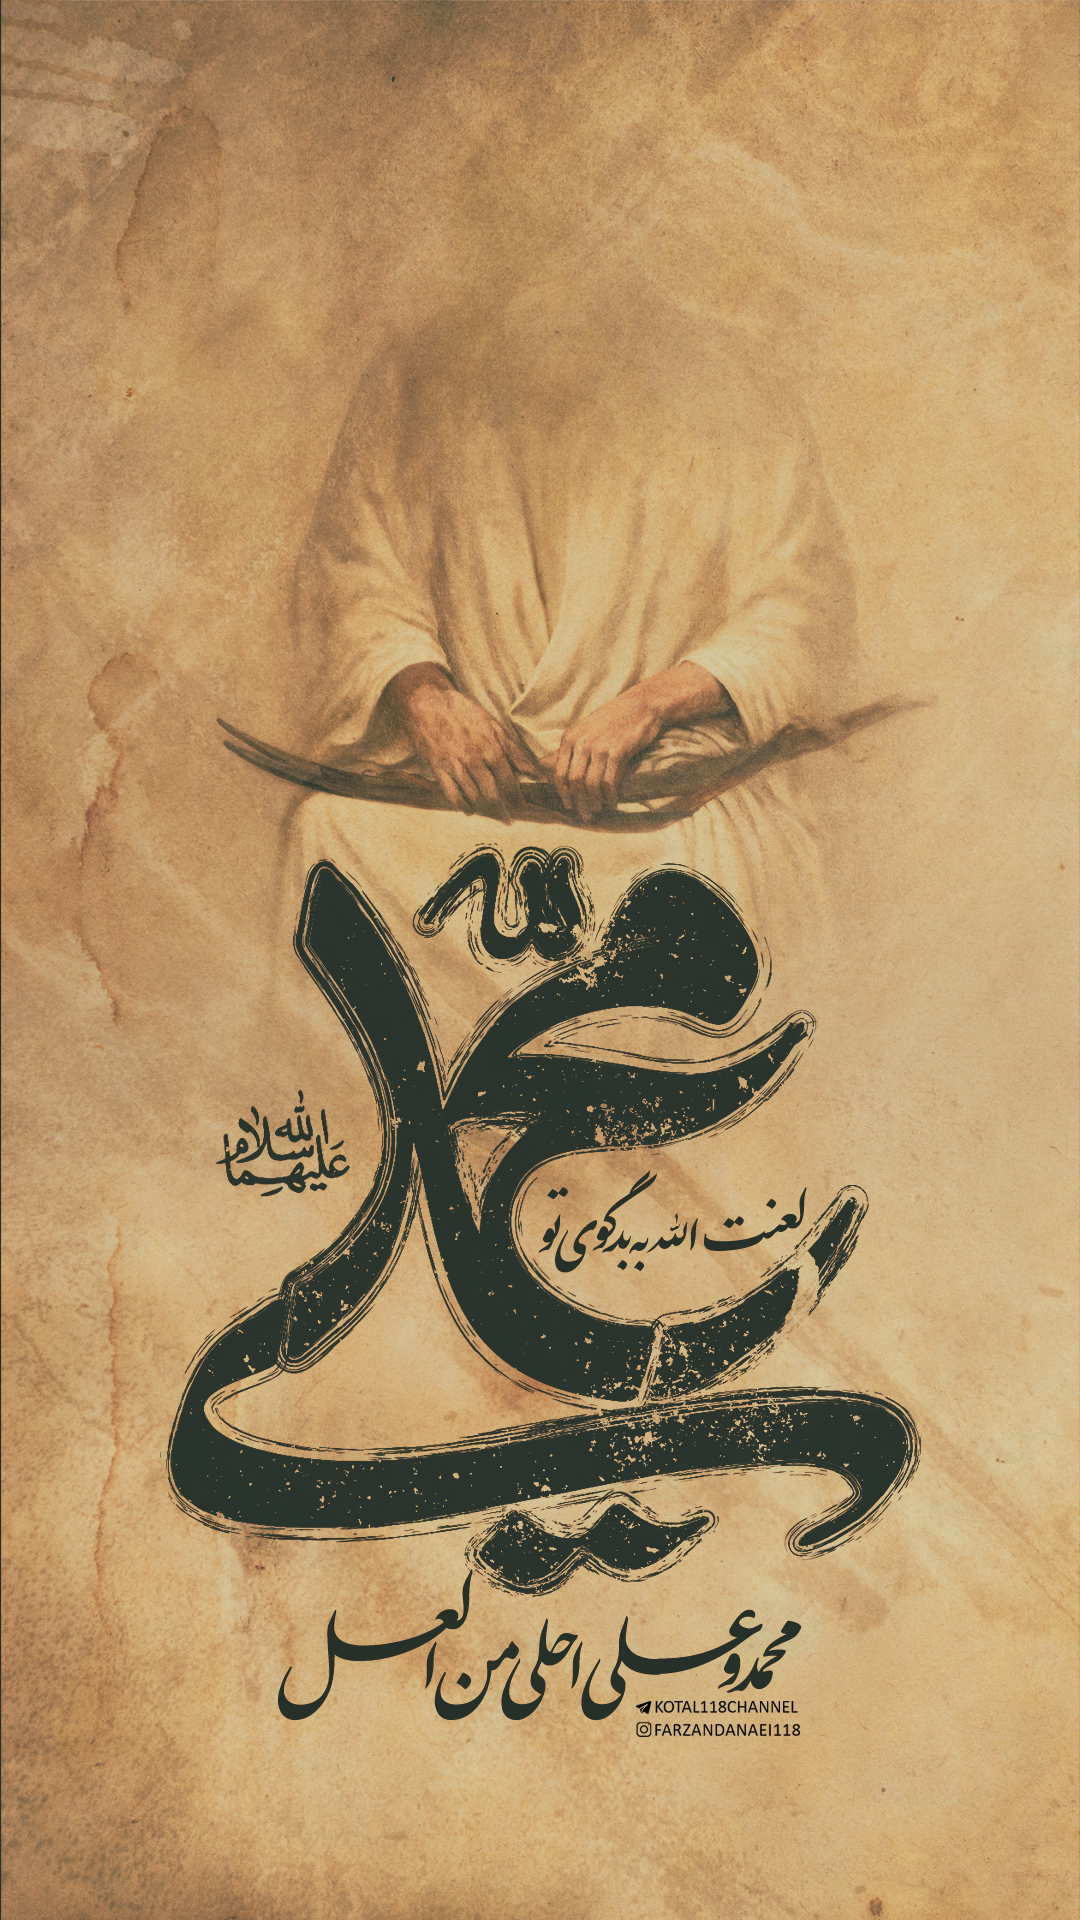 محمد
علی
سلام الله علیهما
لعنت الله به بدگوی تو
محمد و علی احلی من العسل
KOTAL118CHANNEL
FARZANDANAEI118